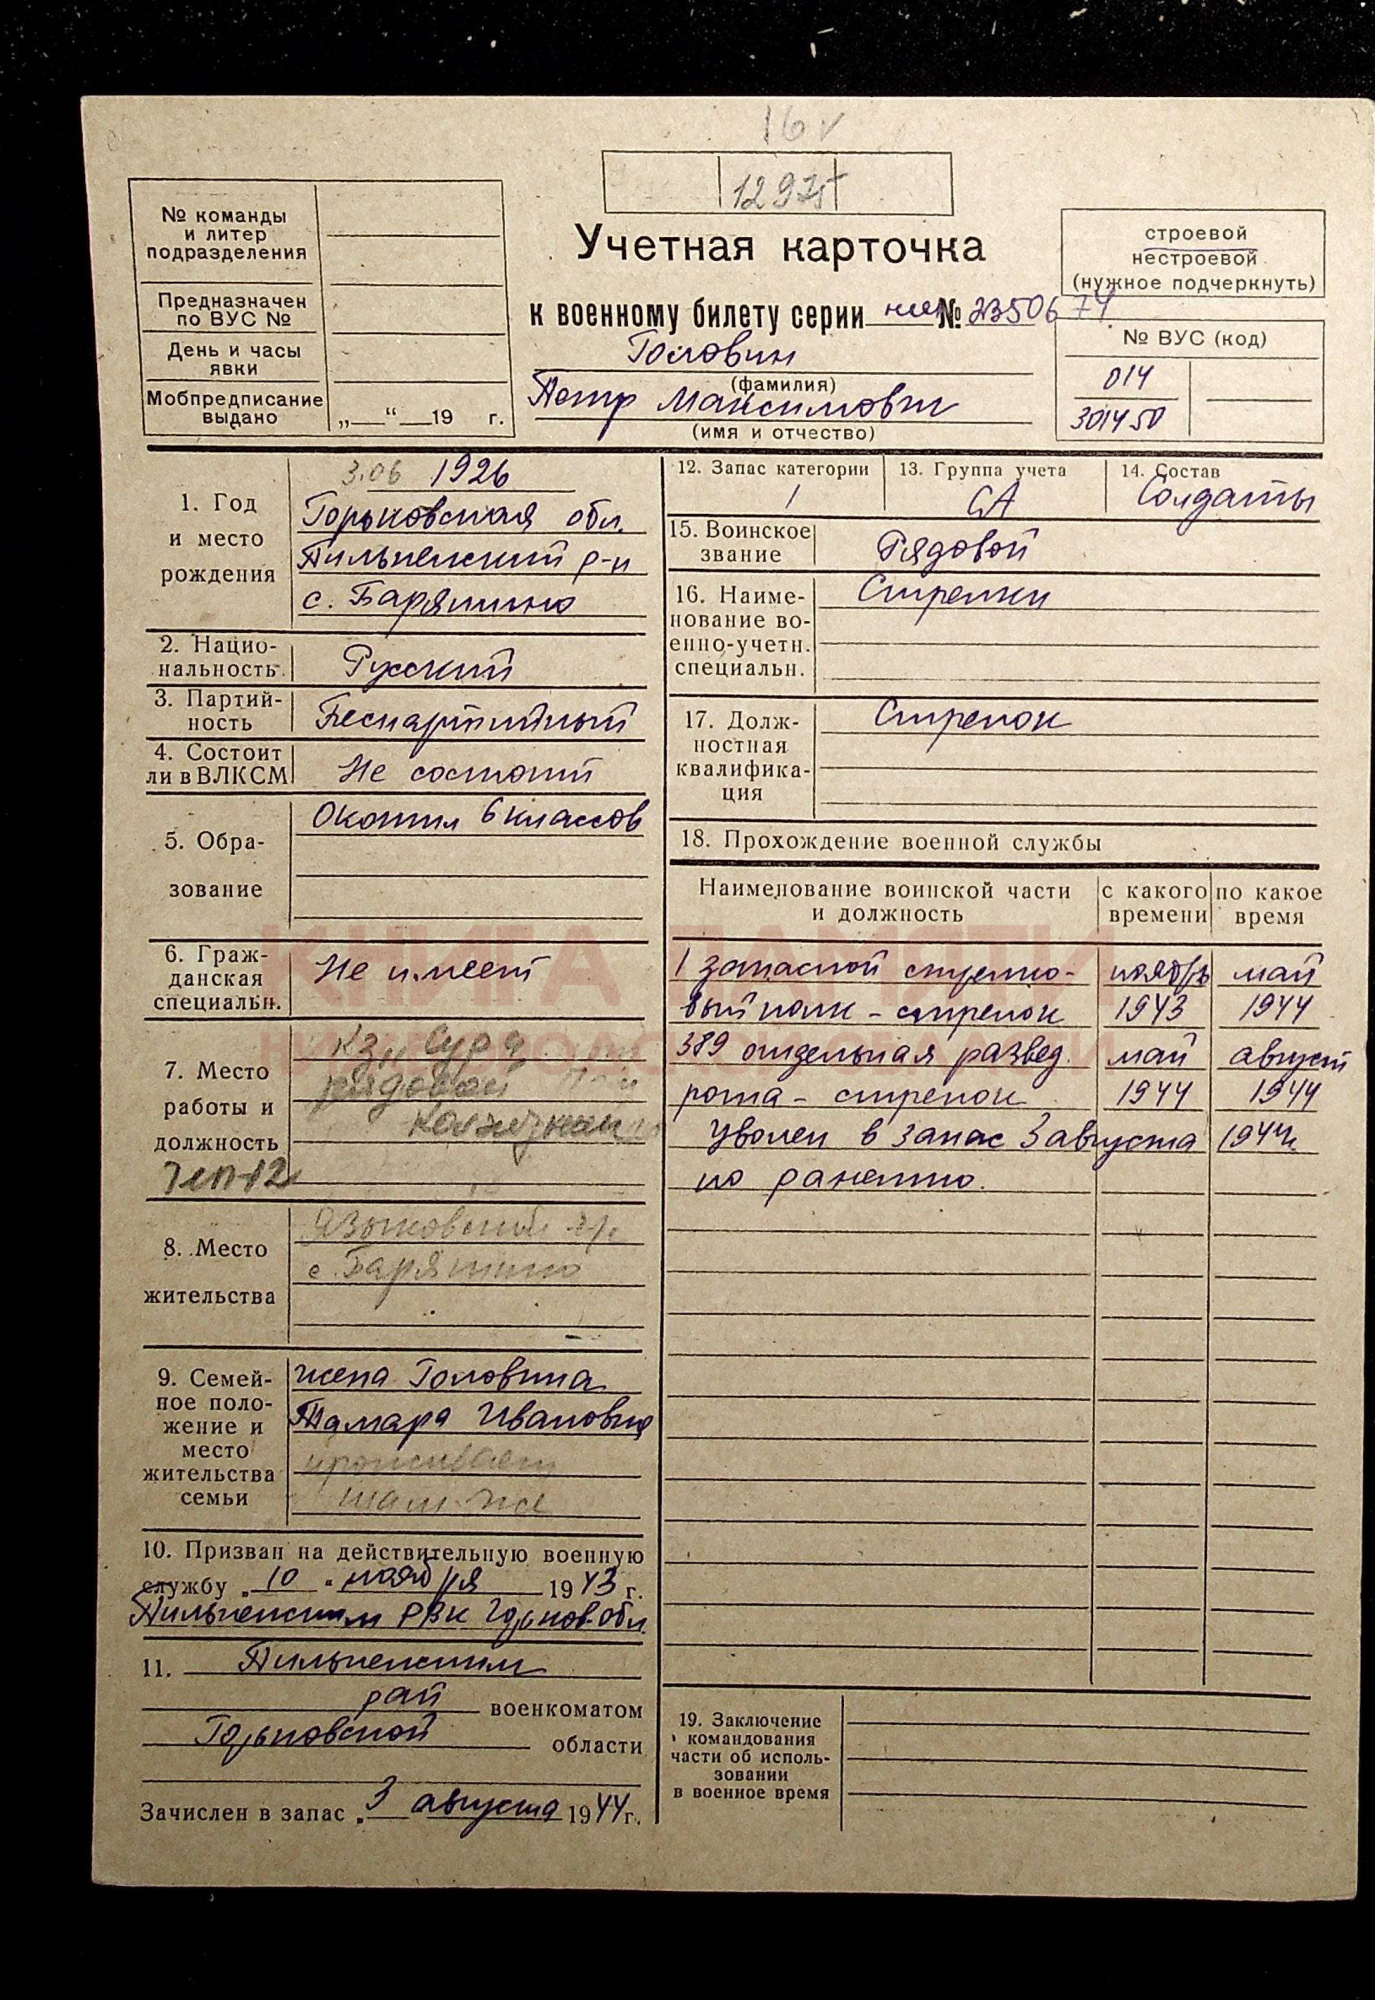 16
12975
№ команды
и литер
подразделения
Предназначен
по ВУС №
День и часы
явки
Мобпредписание
выдано
„__“__19 г.
Учетная карточка
к военному билету серии № 2350674
Головин
(фамилия)
Петр Максимович
(имя и отчество)
строевой
нестроевой
(нужное подчеркнуть)
№ ВУС (код)
014
301450
1. Год
и место
рождения
3.06 1926
Горьковская обл.
Пильненский р-н
с. Барятино
2. Нацио-
нальность
Русский
3. Партий-
ность
Беспартийный
4. Состоит
ли в ВЛКСМ
Не состоит
5. Обра-
зование
Окончил 6 классов
6. Граж-
данская
специальн.
Не имеет
7. Место
работы и
должность
Сура
рядовой
8. Место
жительства
Языковский
с. Барятино
9. Семей-
ное поло-
жение и
место
жительства
семьи
жена Головина
Тамара Ивановна
проживает
там же
10. Призван на действительную военную
службу „10“ ноября 1943 г.
Пильненским РВК Горьков. обл.
11. Пильненским
рай военкоматом
Горьковской области
Зачислен в запас „3 августа 1944 г.
12. Запас категории
1
13. Группа учета
СА
14. Состав
Солдаты
15. Воинское
звание
Рядовой
16. Наиме-
нование во-
енно-учетн.
специальн.
Стрелки
17. Долж-
ностная
квалифика-
ция
Стрелок
18. Прохождение военной службы
Наименование воинской части
и должность
с какого
времени
по какое
время
1 запасной стрелко- ноябрь май
вый полк - стрелок 1943 1944
389 отдельная развед. май август
рота - стрелок 1944 1944
Уволен в запас 3 августа 1944г.
по ранению.
19. Заключение
командования
части об исполь-
зовании
в военное время
КНИГА ПАМЯТИ
НИЖЕГОРОДСКОЙ ОБЛАСТИ